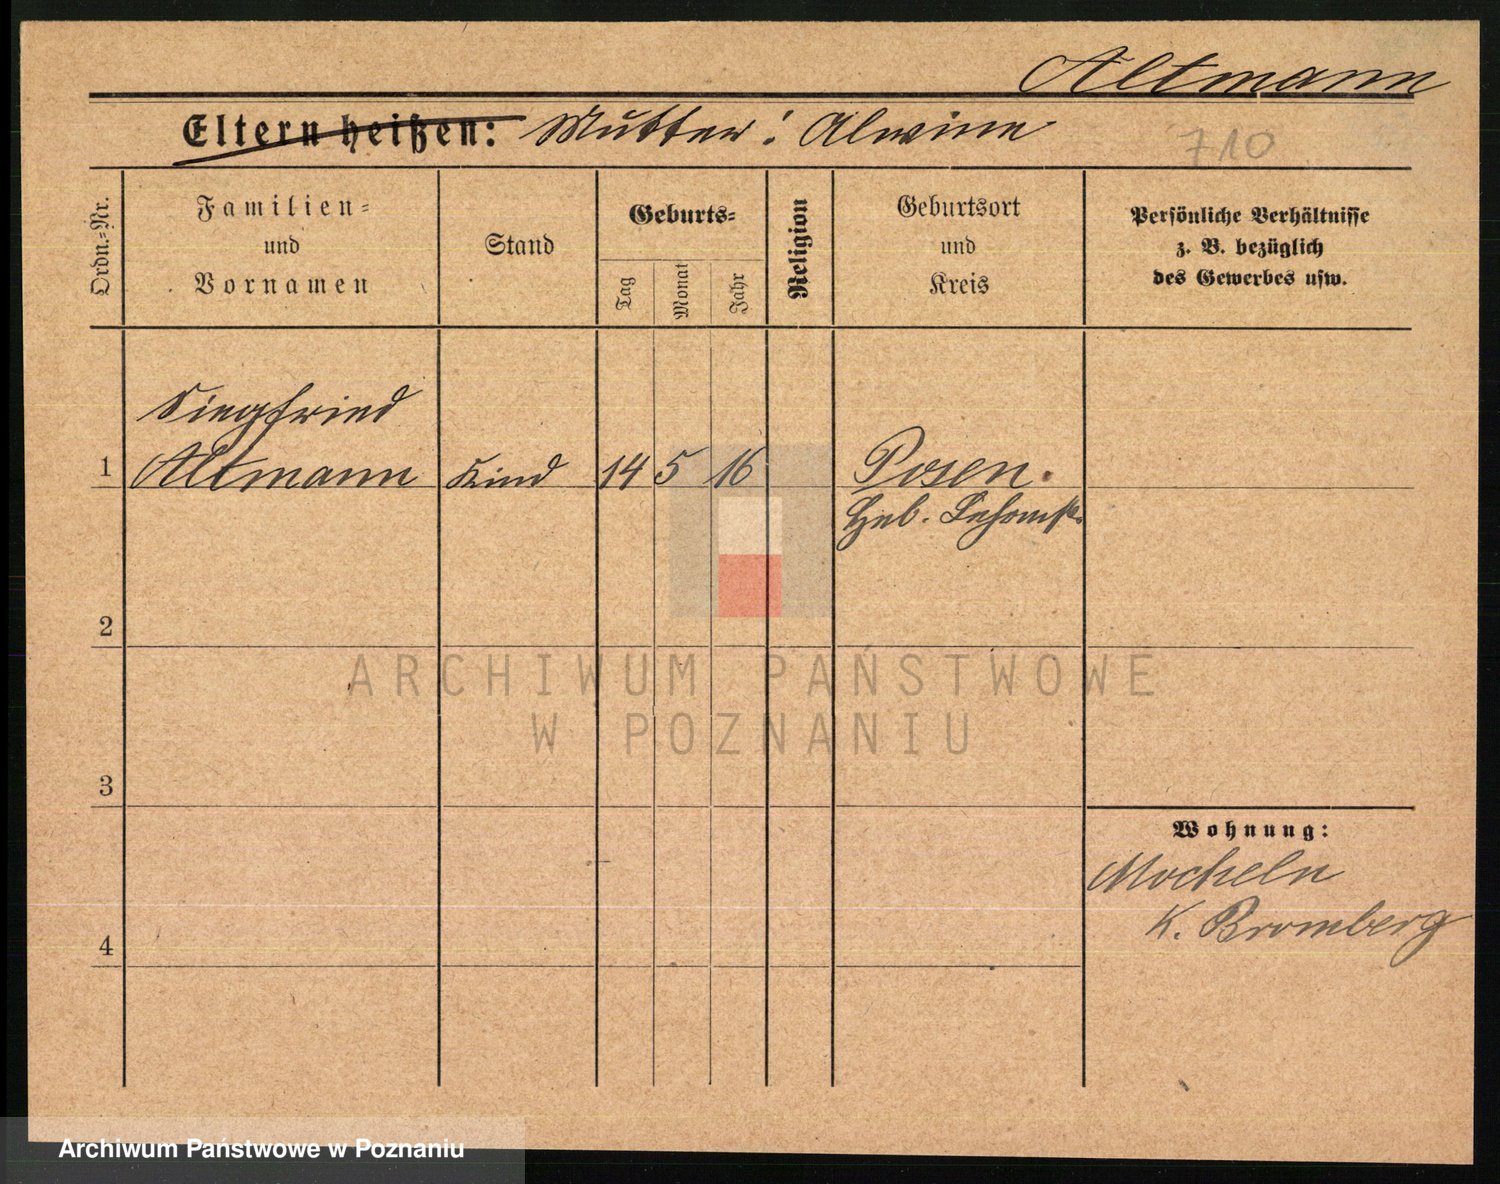 Altmann
Eltern heißen: Mutter: Alwine
710
Ordn.-Nr.
Familien-
und
Vornamen
Stand
Geburts-
Tag
Monat
Jahr
Religion
Geburtsort
und
Kreis
Persönliche Verhältnisse
z. B. bezüglich
des Gewerbes usw.
Siegfried
1 Altmann Kind 14 5 16 Posen.
Heb.
2
ARCHIWUM PAŃSTWOWE
W POZNANIU
3
Wohnung:
Mocheln
K. Bromberg
4
Archiwum Państwowe w Poznaniu